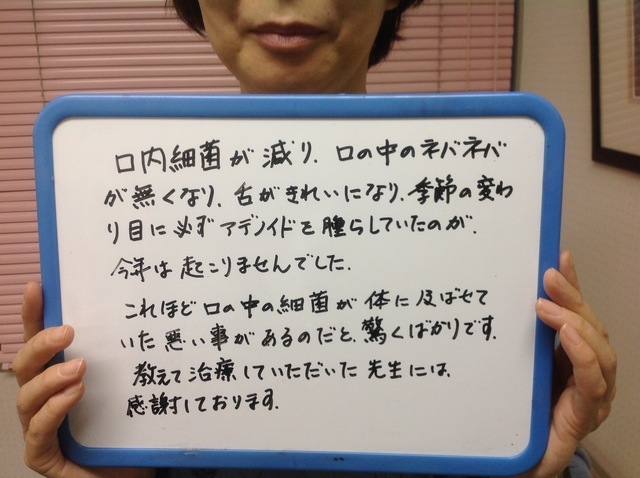 口内細菌が減り、口の中のネバネバ
が無くなり、舌がきれいになり、季節の変わ
り目に必ずアデノイドを腫らしていたのが、
今年は起こりませんでした。
これほど口の中の細菌が体に及ばせて
いた悪い事があるのだと、驚くばかりです。
教えて治療していただいた先生には、
感謝しております。